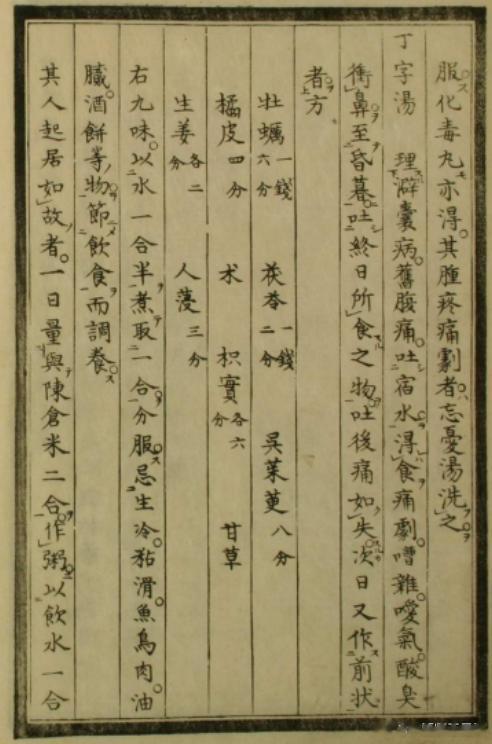 服化毒丸亦得。其腫疼痛劇者。忘憂湯洗之
丁字湯 理澼囊病。舊腹痛。吐宿水。得食痛劇。嘈雜。噯氣。酸臭
衝鼻。至昏暮。吐終日所食之物。吐後痛如失。次日又作前狀
者方
牡蠣一錢六分 茯苓一錢二分 吳茱萸八分
橘皮四分 朮 枳實各六分 甘草
生姜各二分 人薓三分
右九味。以水一合半。煮取一合。分服。忌生冷黏滑魚鳥肉油
膩。酒餅等物。節飲食。而調養
其人起居如故者。一日量與陳倉米二合。作粥。以飲水一合